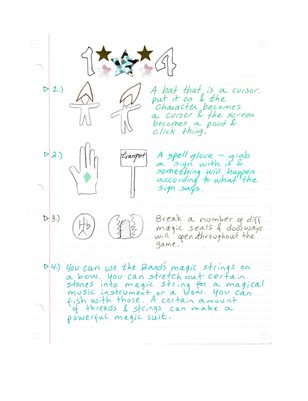 1 4
1.) A hat that is a cursor.
put it on & the
Character becomes
a cursor & the screen
becomes a point &
click thing.
2.) A spell glove – grab
a sign with it &
something will happen
according to what the
sign says.
3.) Hb Break a number of diff
magic seals & doorways
will open throughout the
game.
4.) You can use the Bands magic strings on
a bow. You can stretch out certain
stones into magic string for a magical
music instrument or a bow. You can
fish with those. A certain amount
of threads & strings can make a
powerful magic suit.